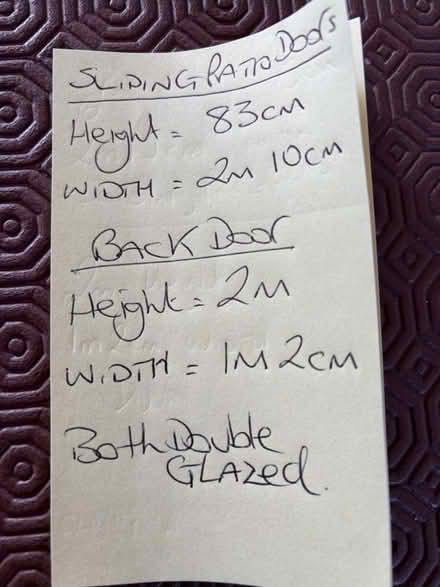 SLIDING PATIO DOORS
Height = 83cm
WIDTH = 2M 10CM
BACK DOOR
Height = 2M
WIDTH = 1M 2CM
Both Double
GLAZED.